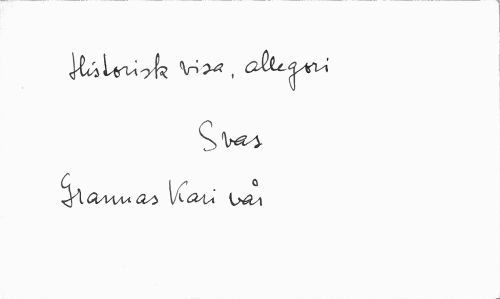 Historisk visa, allegori
Svas
Grannas Kari vår